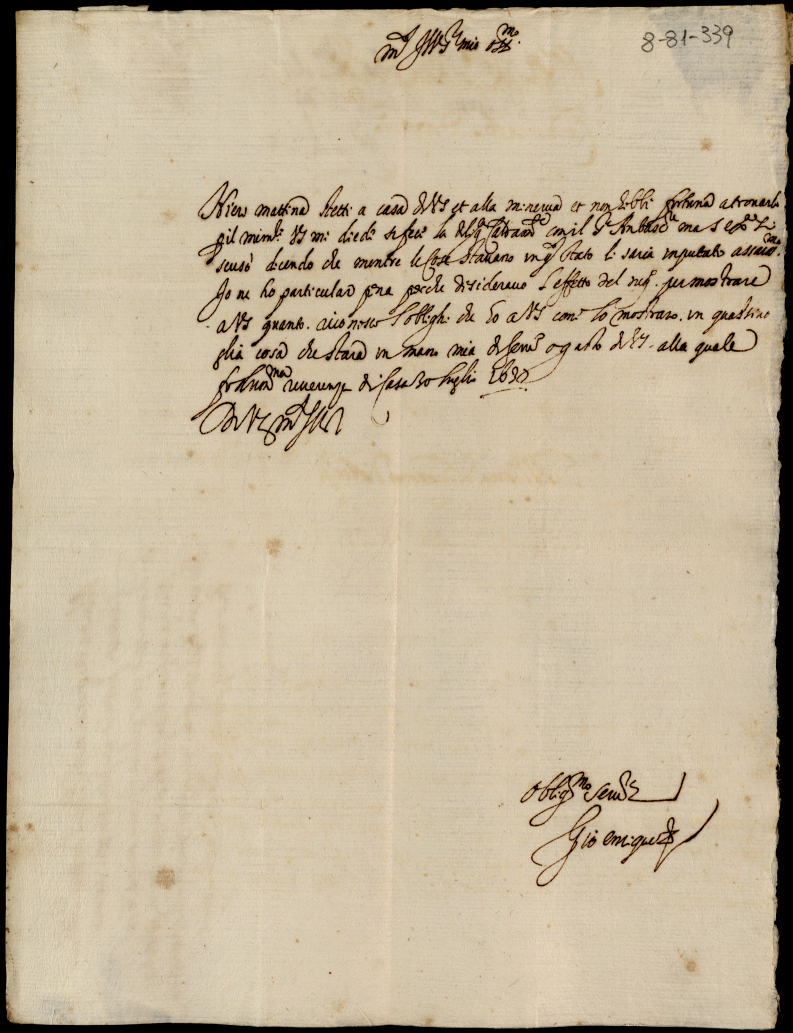 8-81-339
m.to Ill.re S.r mio oss.mo
Hiers mattina stetti a casa di VS et alla minerva et non hebbi fortuna a trovarla
il mim.le VS mi diede si fece la con il S.r Ambasc.re ma S
scusò dicendo che mentre le cose stavano in q.o stato li saria imputato
Io ne ho particular pena perche desideravo l'effetto del neg.o per mostrare
a VS quanto riconosco l'oblighi che ho a VS come lo mostraro in qualsivo
glia cosa che stara in mano mia di serv.o o gusto di VS. alla quale
reverenza di Casa 30 luglio
Di VS m.to Ill.re
Oblig.mo Serv.re
Gio enriquez